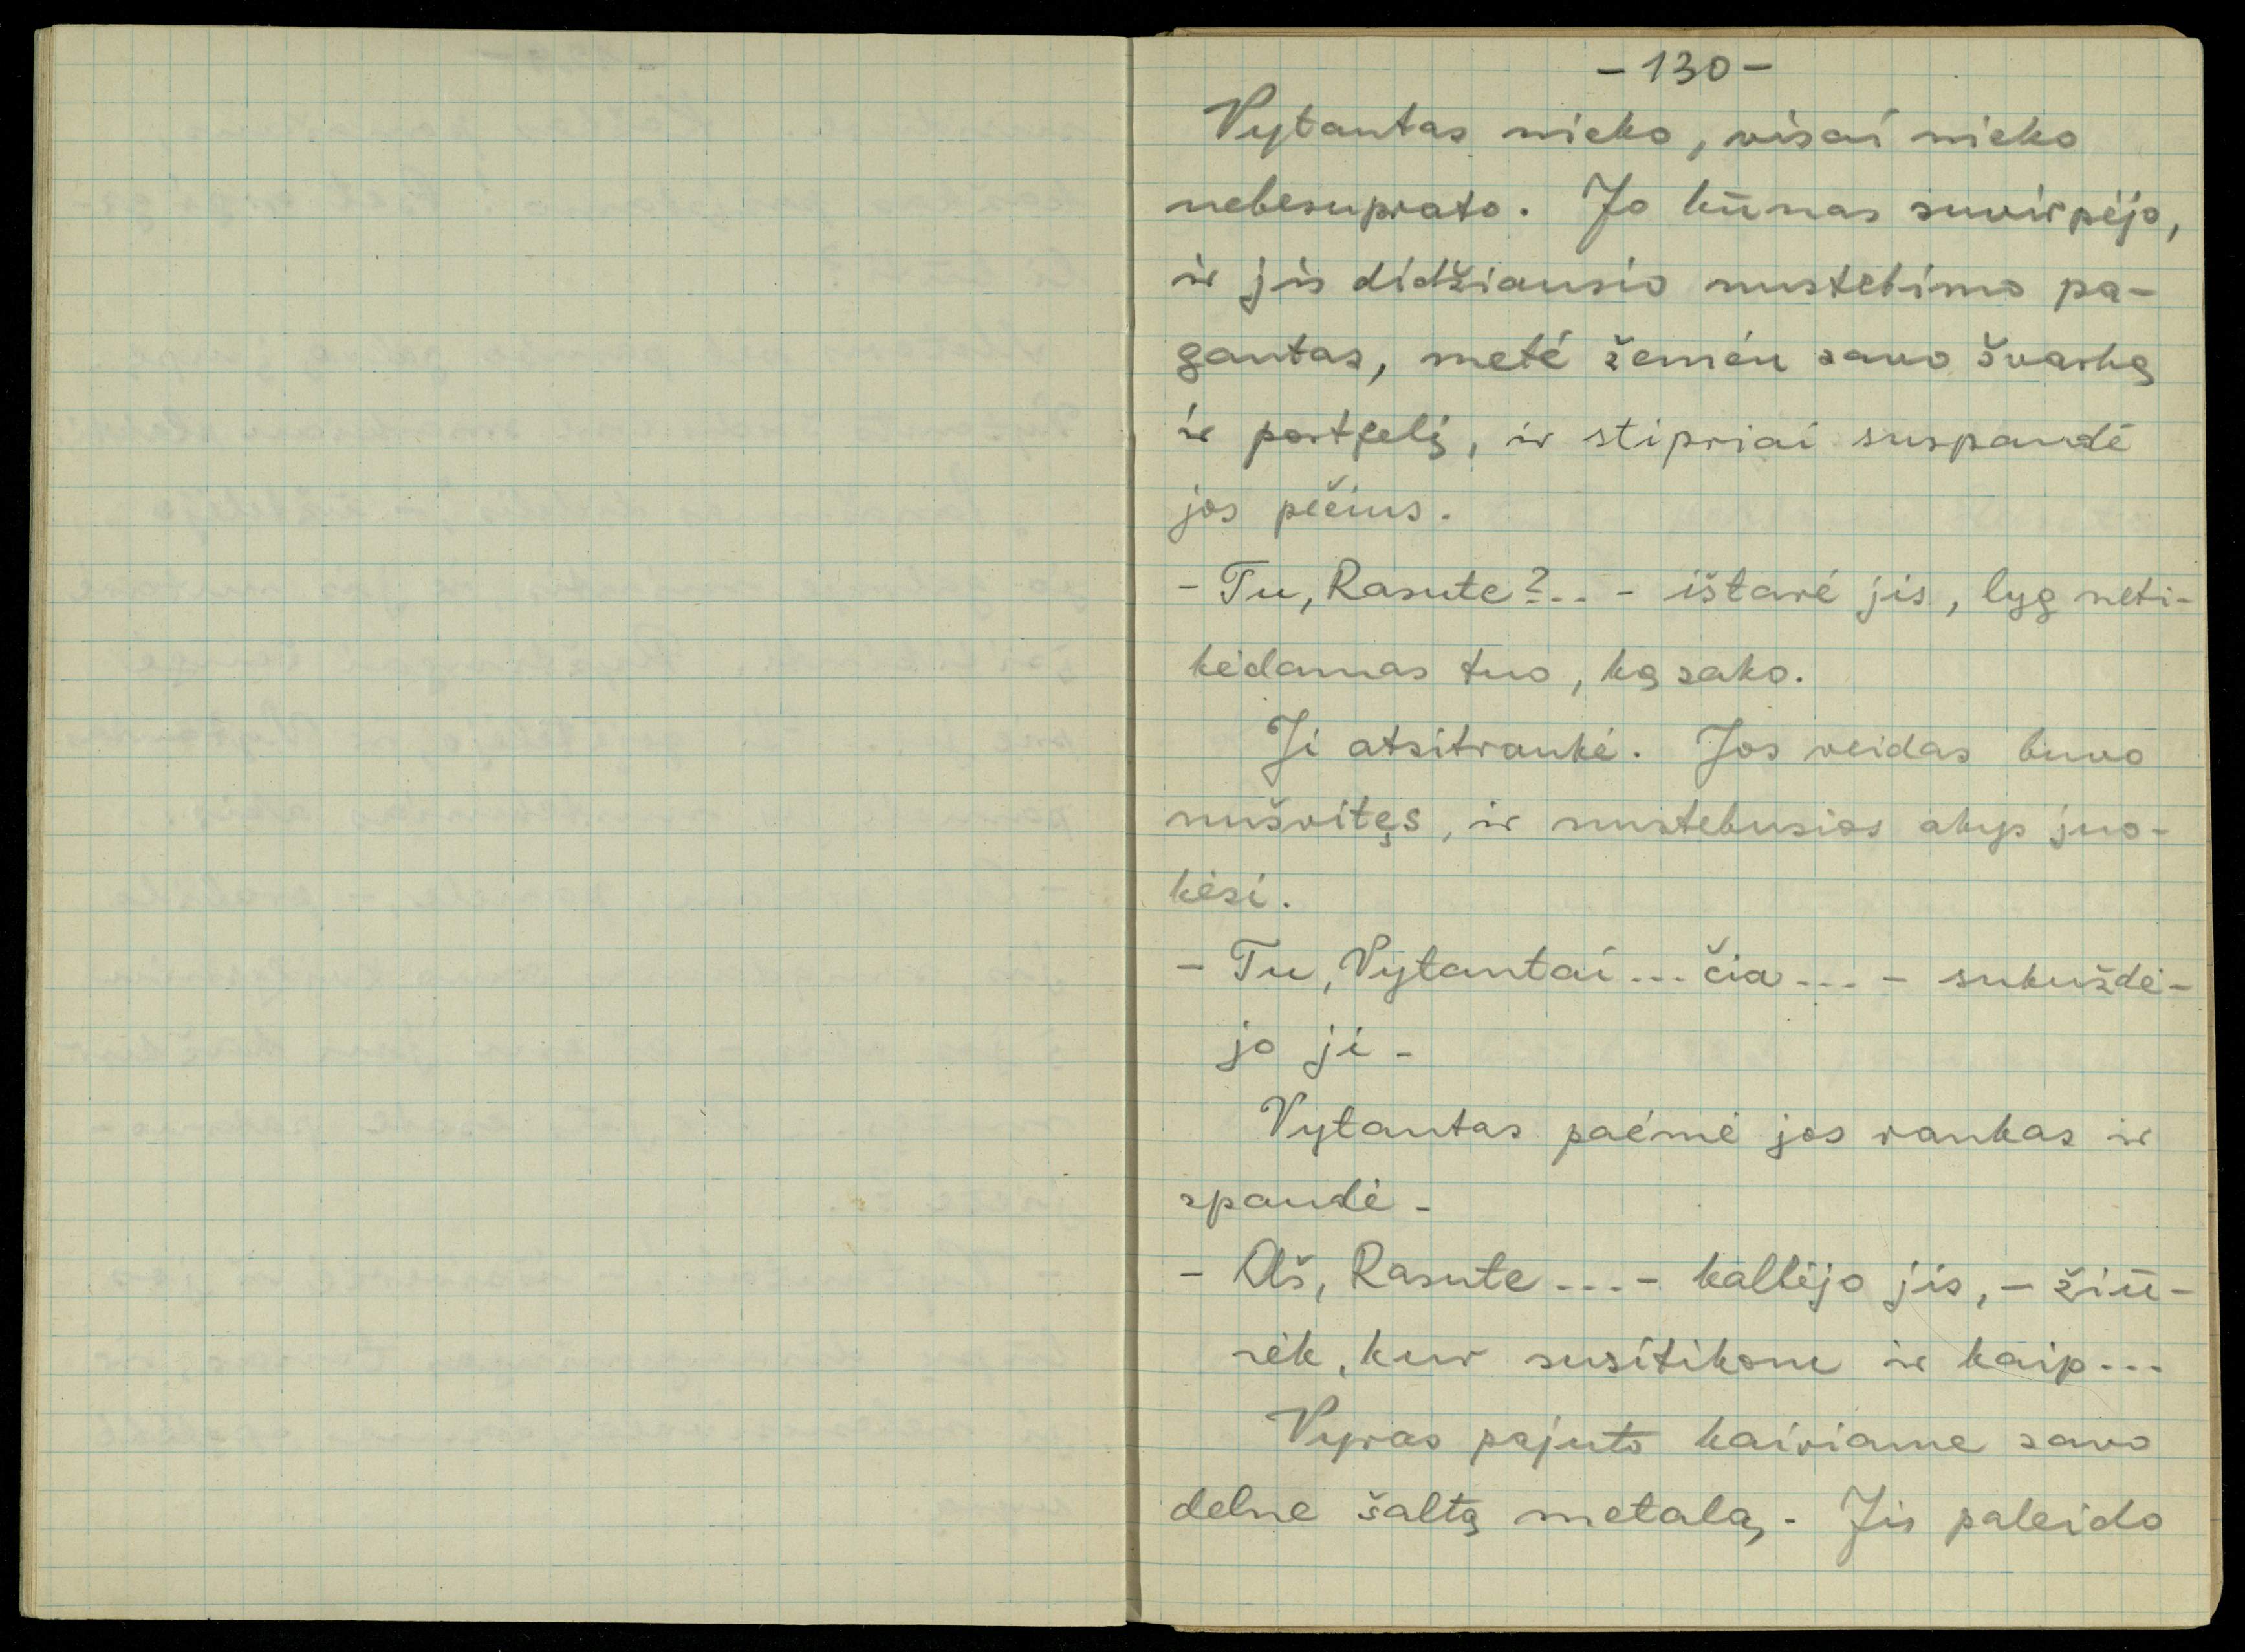 - 130 -
Vytautas nieko, visai nieko
nebesuprato. Jo kūnas suvirpėjo,
ir jis didžiausio nustebimo pa-
gautas, metė žemėn savo švarką
ir portfelį, ir stipriai suspaudė
jos pečius.
- Tu, Rasute?.. - ištarė jis, lyg neti-
kėdamas tuo, ką sako.
Ji atsitraukė. Jos veidas buvo
nušvitęs, ir nustebusios akys juo-
kėsi.
- Tu, Vytautai... čia... - sukuždė-
jo ji.
Vytautas paėmė jos rankas ir
spaudė.
- Aš, Rasute... - kalbėjo jis, - žiū-
rėk, kur susitikom ir kaip...
Vyras pajuto kairiame savo
delne šaltą metalą. Jis paleido